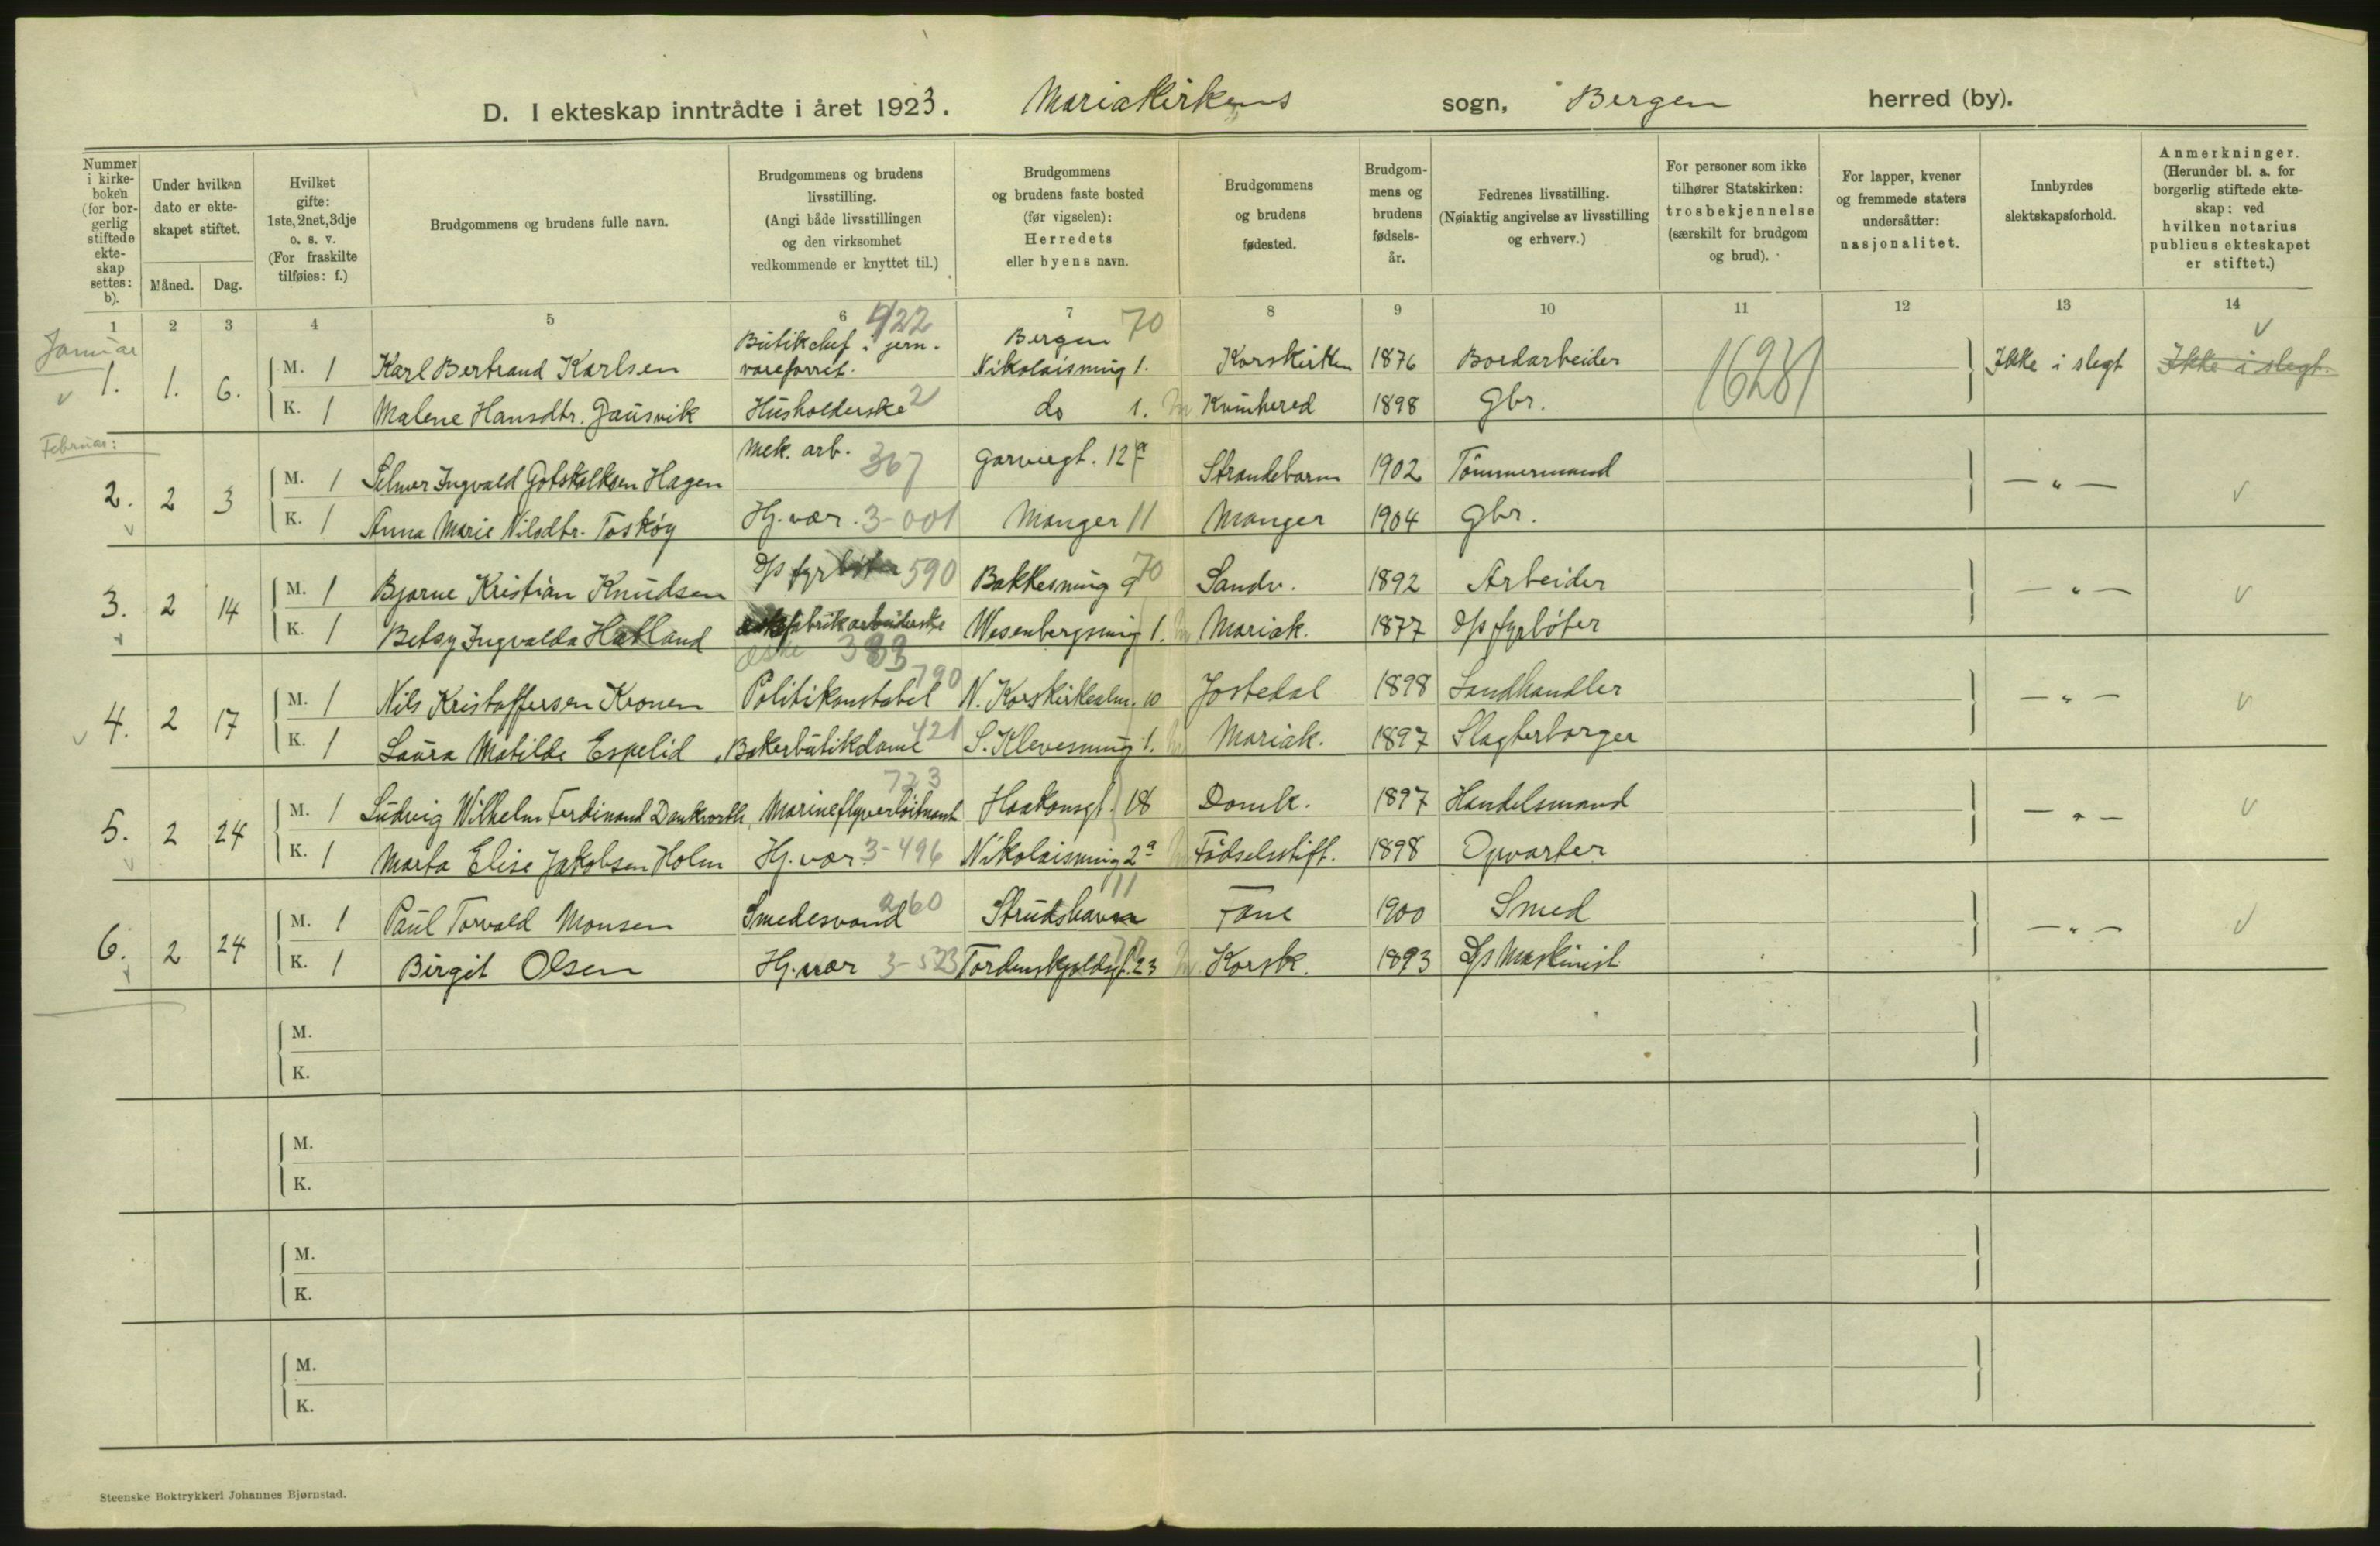 D. I ekteskap inntrådte i året 1923. Mariakirkens sogn, Bergen herred (by).
Nummer i kirke- boken (for bor- gerlig stiftede ekte- skap settes: b).
Under hvilken dato er ekte- skapet stiftet.
Måned. Dag.
Hvilket gifte: 1ste, 2net, 3dje o. s. v. (For fraskilte tilføies: f.)
Brudgommens og brudens fulle navn.
Brudgommens og brudens livsstilling. (Angi både livsstillingen og den virksomhet vedkommende er knyttet til.)
Brudgommens og brudens faste bosted (før vigselen): Herredets eller byens navn.
Brudgommens og brudens fødested.
Brudgom- mens og brudens fødsels- år.
Fedrenes livsstilling. (Nøiaktig angivelse av livsstilling og erhverv.)
For personer som ikke tilhører Statskirken: trosbekjennelse (særskilt for brudgom og brud).
For lapper, kvener og fremmede staters undersåtter: nasjonalitet.
Innbyrdes slektskapsforhold.
Anmerkninger. (Herunder bl. a. for borgerlig stiftede ekte- skap: ved hvilken notarius publicus ekteskapet er stiftet.)
1 2 3 4 5 6 7 8 9 10 11 12 13 14
Januar
422 Bergen 70
1. 1. 6. M. 1 Karl Bertrand Karlsen Butikchef i jern- vareforret. Nikolaismug 1. Korskirken 1876 Bordarbeider 16281 Ikke i slegt Ikke i slegt.
K. 1 Malene Hansdtr. Gausvik Husholderske 2 do 1. Kvinhered 1898 Gbr.
Februar:
2. 2 3 M. 1 Selmer Ingvald Gotskalksen Hagen Mek. arb. 367 Garvergt. 12 a Strandebarm 1902 Tömmermand — " —
K. 1 Anna Marie Nilsdtr. Toskög Hj. vær. 3-001 Manger 11 Manger 1904 Gbr.
3. 2 14 M. 1 Bjarne Kristian Knudsen D/s fyrböter 590 Bakkesmug 9 70 Sandv. 1892 Arbeider — " —
K. 1 Betsy Ingvalda Hatland fabrikarbeiderske Wesenbergsmug 1. Mariak. 1877 D/s fyrböter
æske 383
4. 2 17 M. 1 Nils Kristoffersen Kronen Politikonstabel 790 N. Korskirkealm. 10 Jostedal 1898 Landhandler — " —
K. 1 Laura Matilde Espelid Bakerbutikdame 421 S. Klevesmug 1. Mariak. 1897 Slagterborger
5. 2 24 M. 1 Ludvig Wilhelm Ferdinand Dankvorth Marineflyverlöitnant 723 Haakonsgt. 18 Domk. 1897 Handelsmand — " —
K. 1 Marta Elise Jakobsen Holm Hj. vær 3-496 Nikolaismug 2a Födselsstift. 1898 Opvarter
6. 2 24 M. 1 Paul Torvald Monsen Smedesvend 260 Strudshavn 11 Fane 1900 Smed — " —
K. 1 Birgit Olsen Hj. vær 3-523 Tordenskjoldsgt. 23 Korsk. 1893 D/s Maskinist
M.
K.
M.
K.
M.
K.
M.
K.
Steenske Boktrykkeri Johannes Bjørnstad.